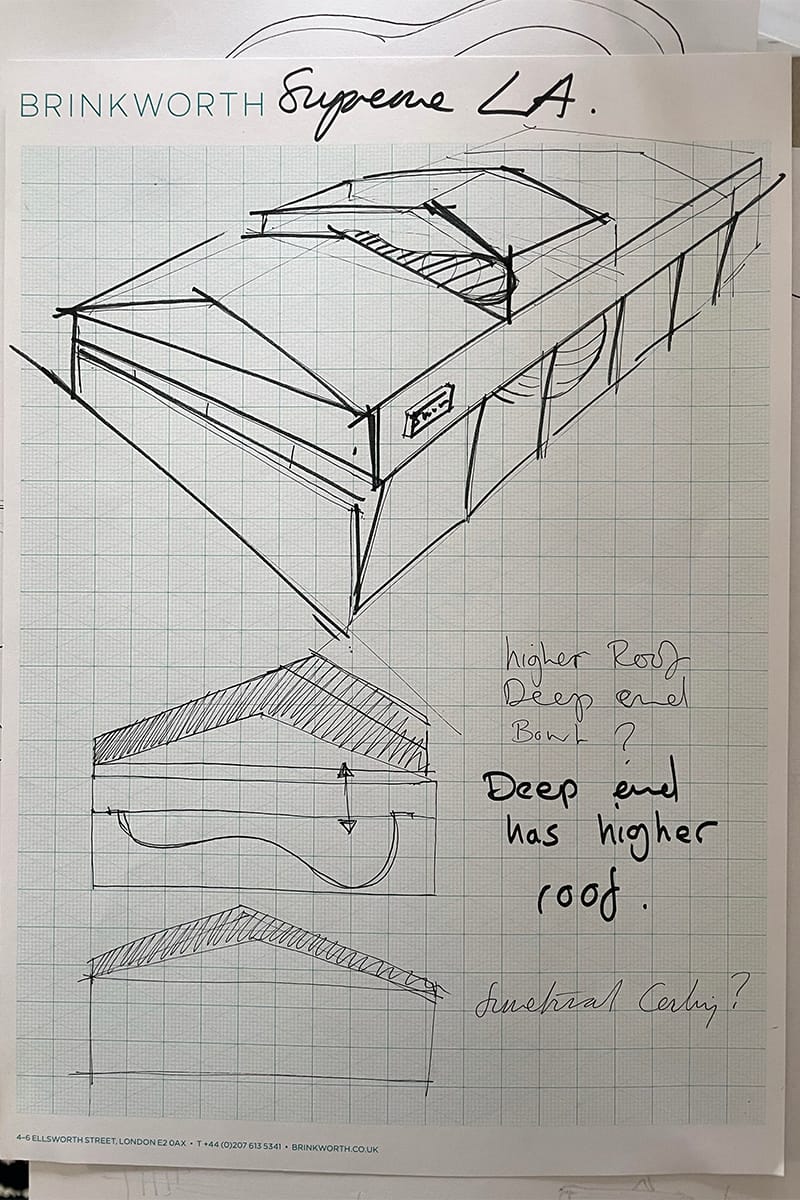 BRINKWORTH Supreme LA.
higher Roof
Deep end
Bowl ?
Deep end
has higher
roof.
?
4–6 ELLSWORTH STREET, LONDON E2 0AX • T +44 (0)207 613 5341 • BRINKWORTH.CO.UK